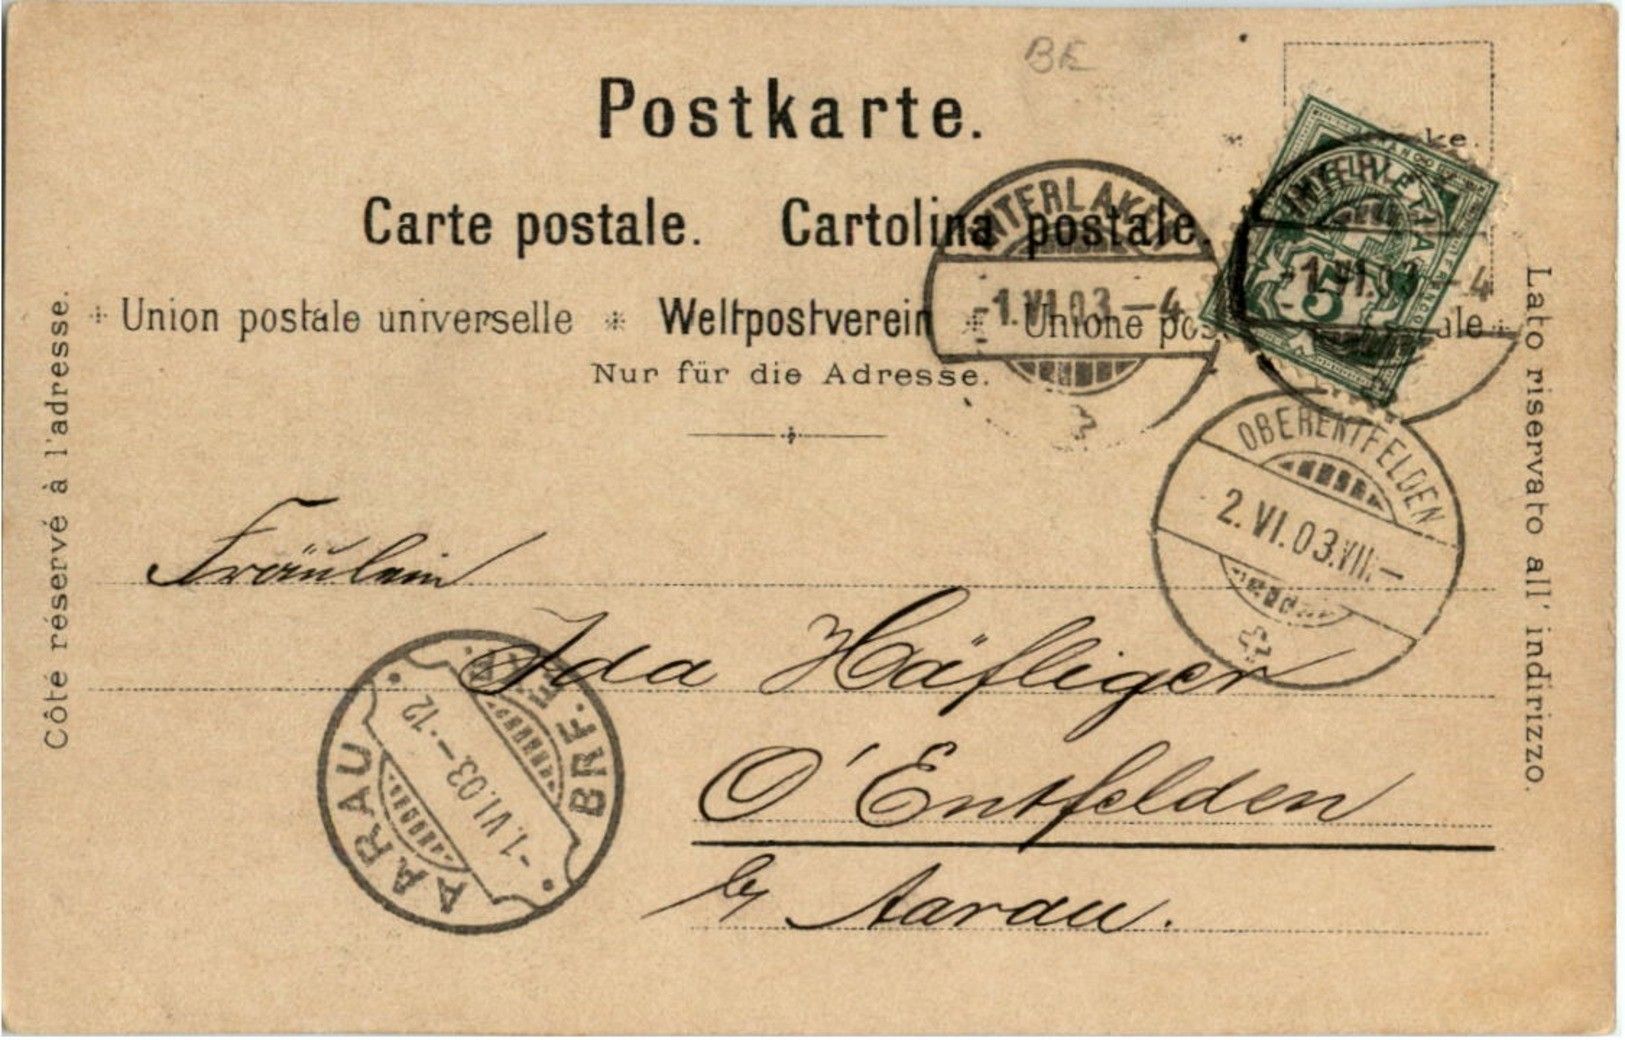 BE
Postkarte.
Carte postale. Cartolina postale.
Union postale universelle * Weltpostverein * Unione postale
Nur für die Adresse.
Côté réservé à l'adresse.
Lato riservato all' indirizzo.
HELVETIA
FRANCO
5
INTERLAKEN
-1.VI.03.-4
-1.VI.03.-4
OBERENTFELDEN
2.VI.03.VII.-
AARAU
-1.VI.03.-.12
BRF.
Fräulein
Ida Häfliger
O' Entfelden
by Aarau.